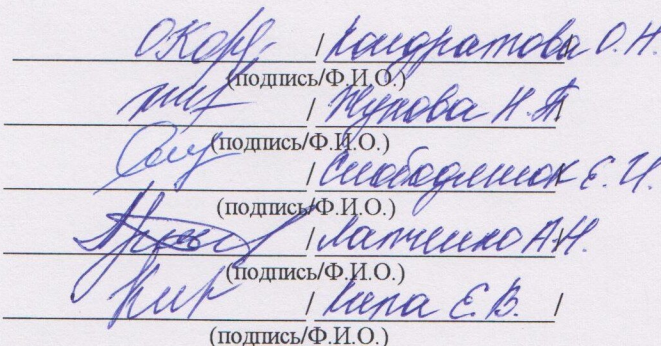 / Кондратова О.Н.
(подпись/Ф.И.О.)
/ Жукова Н.Т.
(подпись/Ф.И.О.)
/ Слободянюк Е.И.
(подпись/Ф.И.О.)
/ Лапченко А.Н.
(подпись/Ф.И.О.)
/ Кила Е.В. /
(подпись/Ф.И.О.)